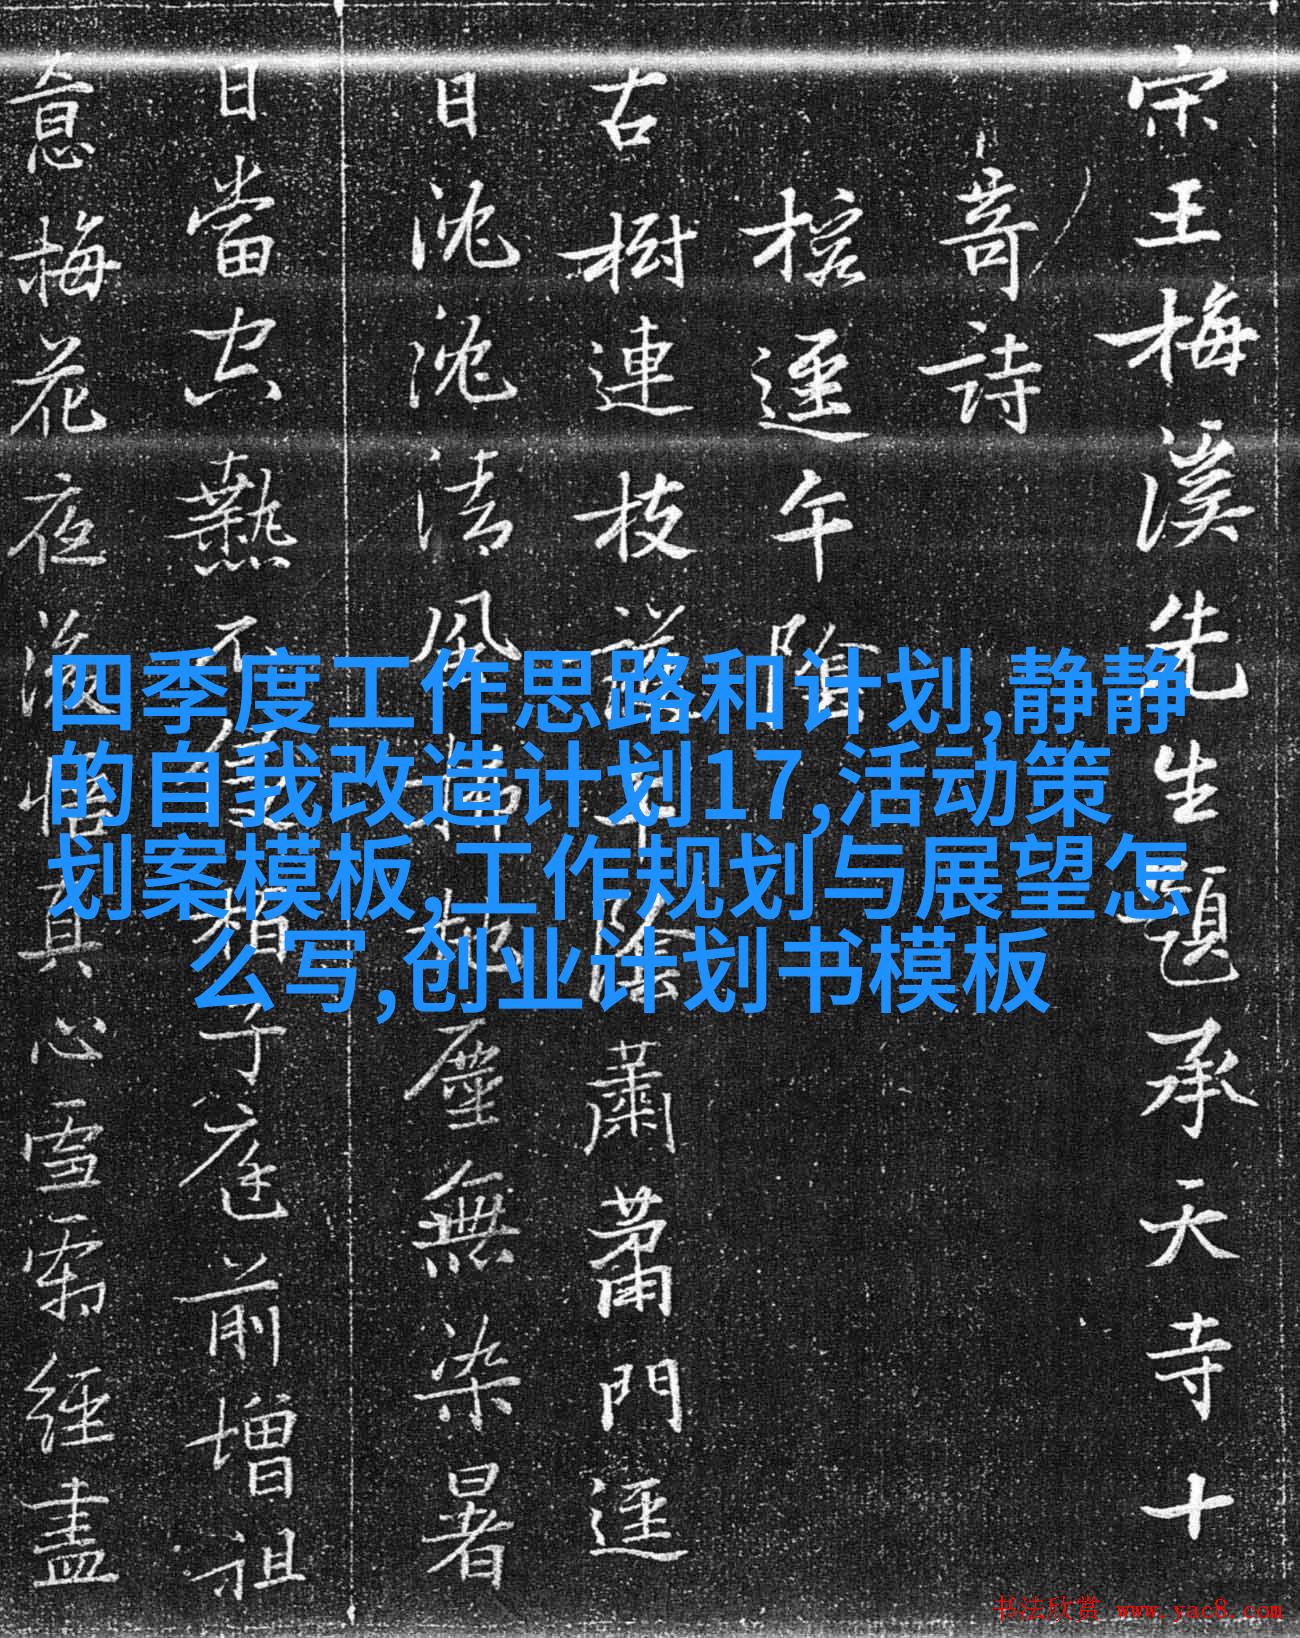 宋王梅溪先生題承天寺十
奇詩
榕逕午陰
古樹連枝
陰蕭蕭門逕
日沈沈清風拂
塵無染暑
日當空熱不
子庭前增祖
意梅花夜深悟真心雪霽經盡
四季度工作思路和计划,静静
的自我改造计划17,活动策
划案模板,工作规划与展望怎
么写,创业计划书模板
书法欣赏 www.yac8.com